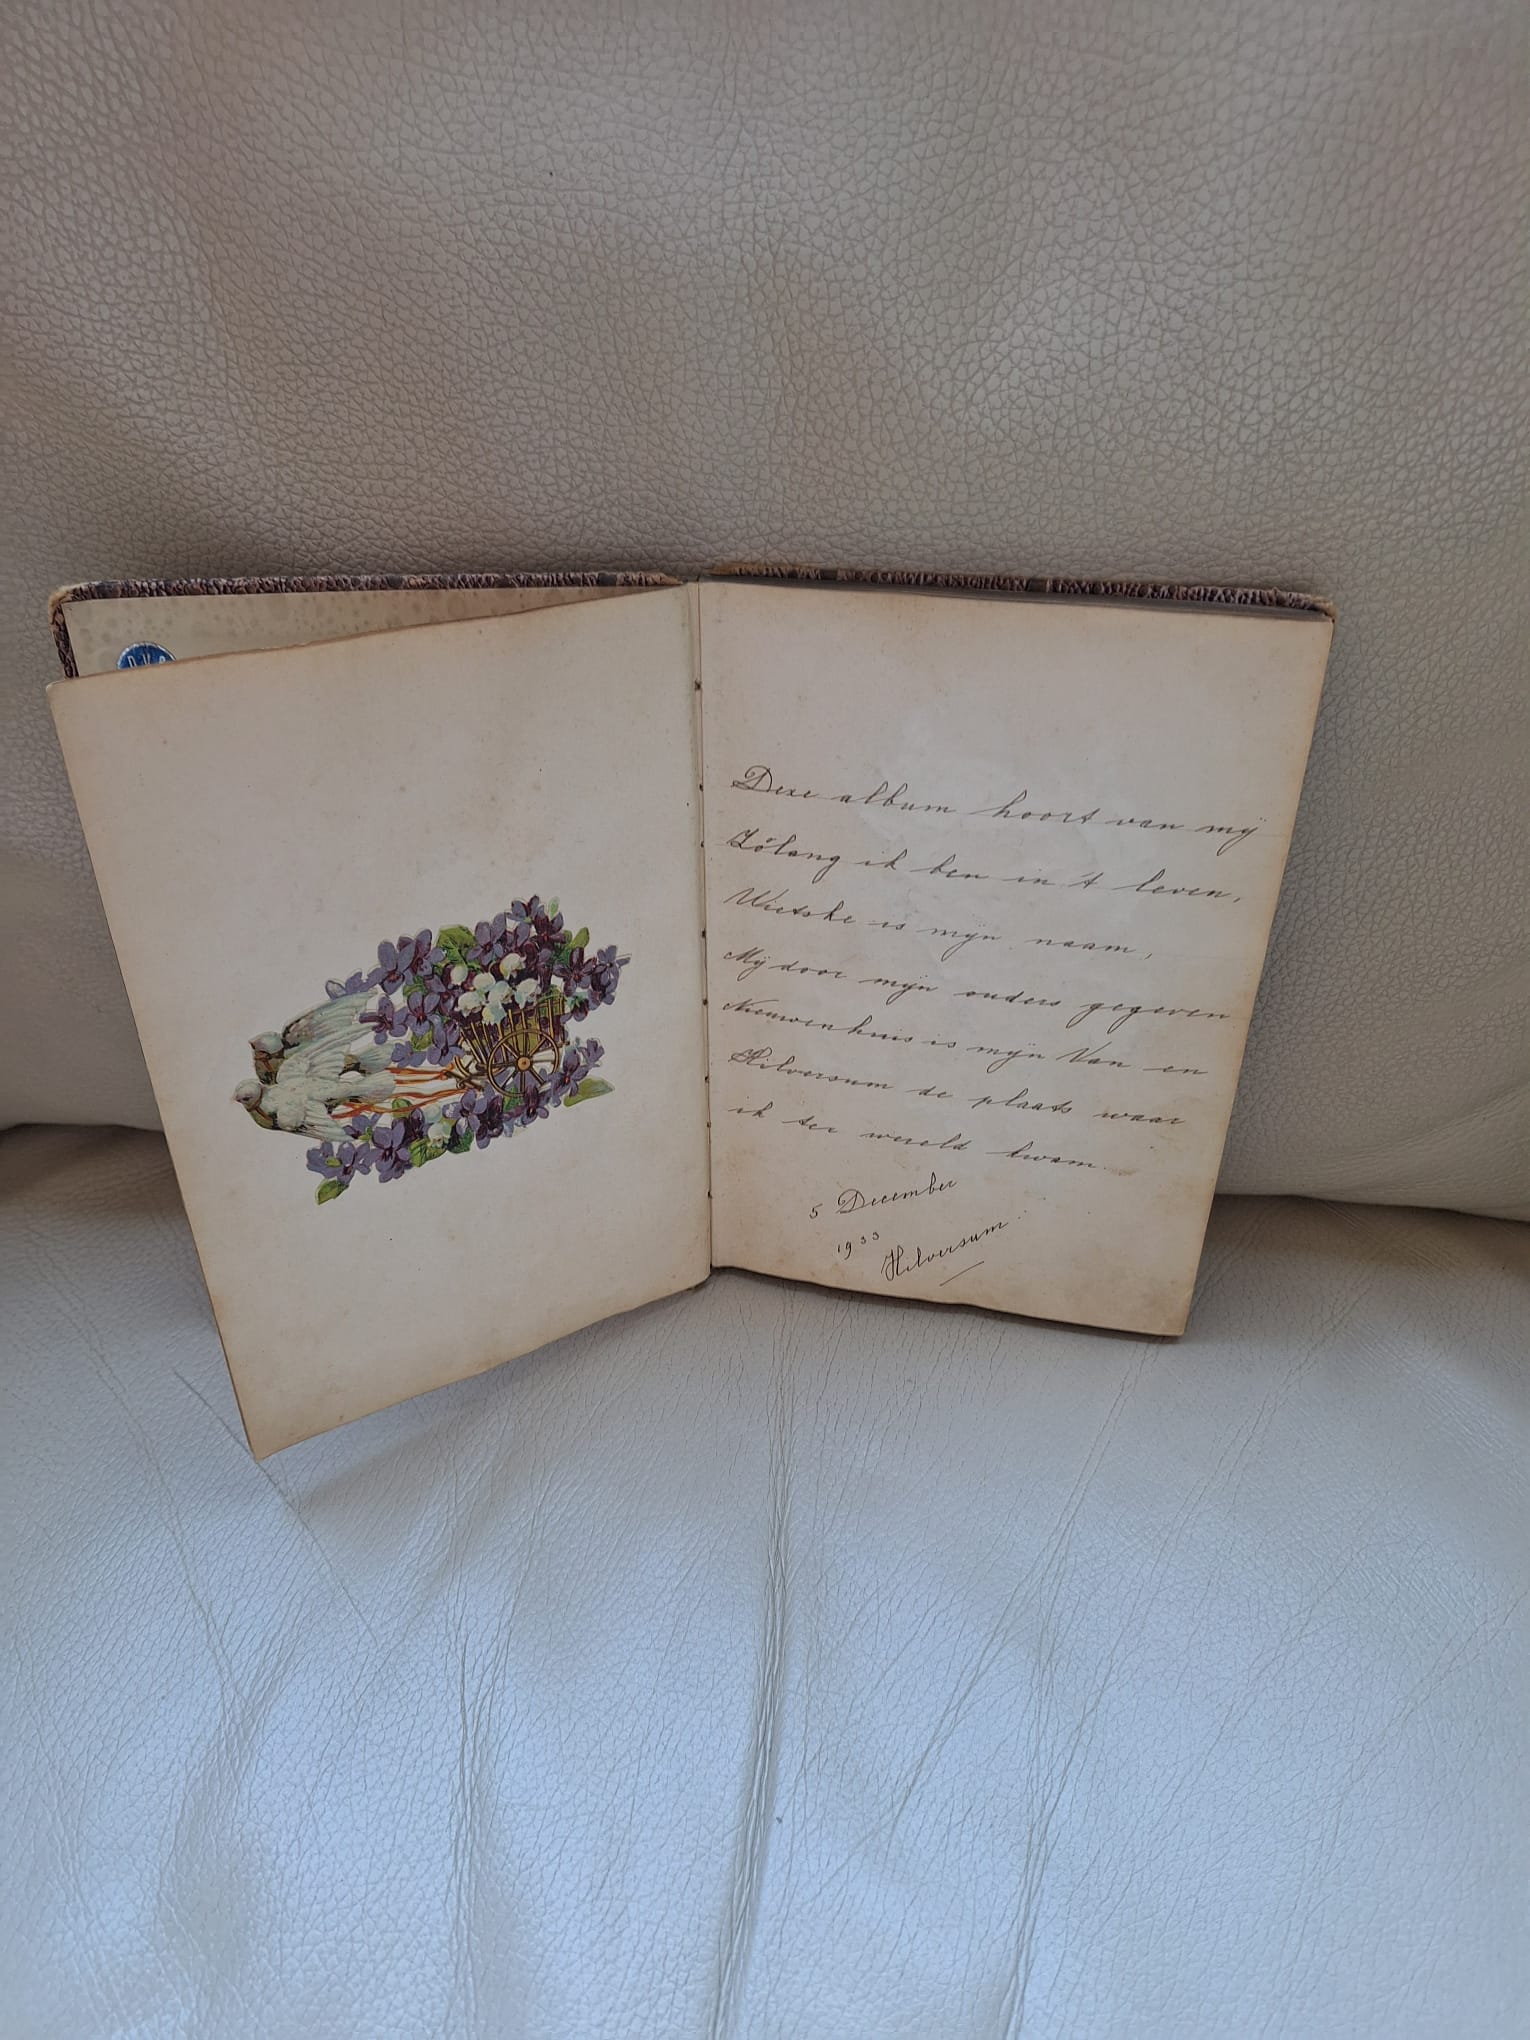 Deze album hoort van mij
Zólang ik ben in 't leven,
Wietske is mijn naam,
Mij door mijn ouders gegeven
Nieuwenhuis is mijn Van en
Hilversum de plaats waar
ik ter wereld kwam.
5 December
1933
Hilversum